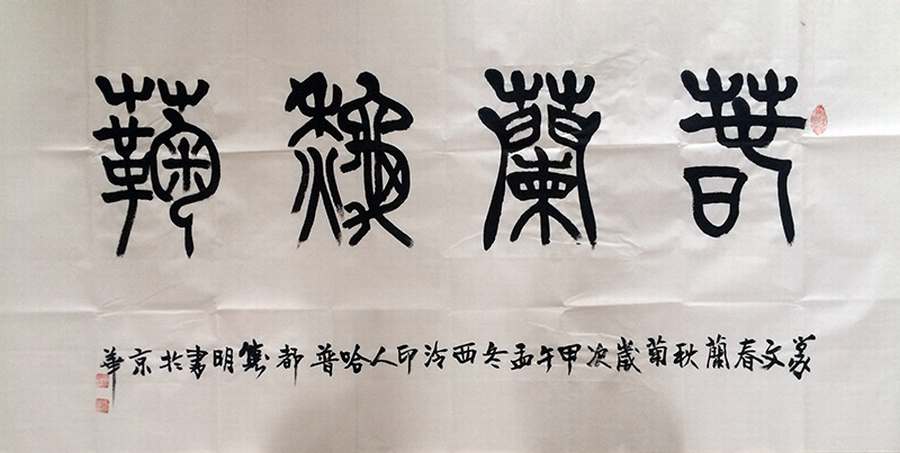 春蘭秋菊
篆文春蘭秋菊歲次甲午孟冬西泠印人哈普都雋明書於京華